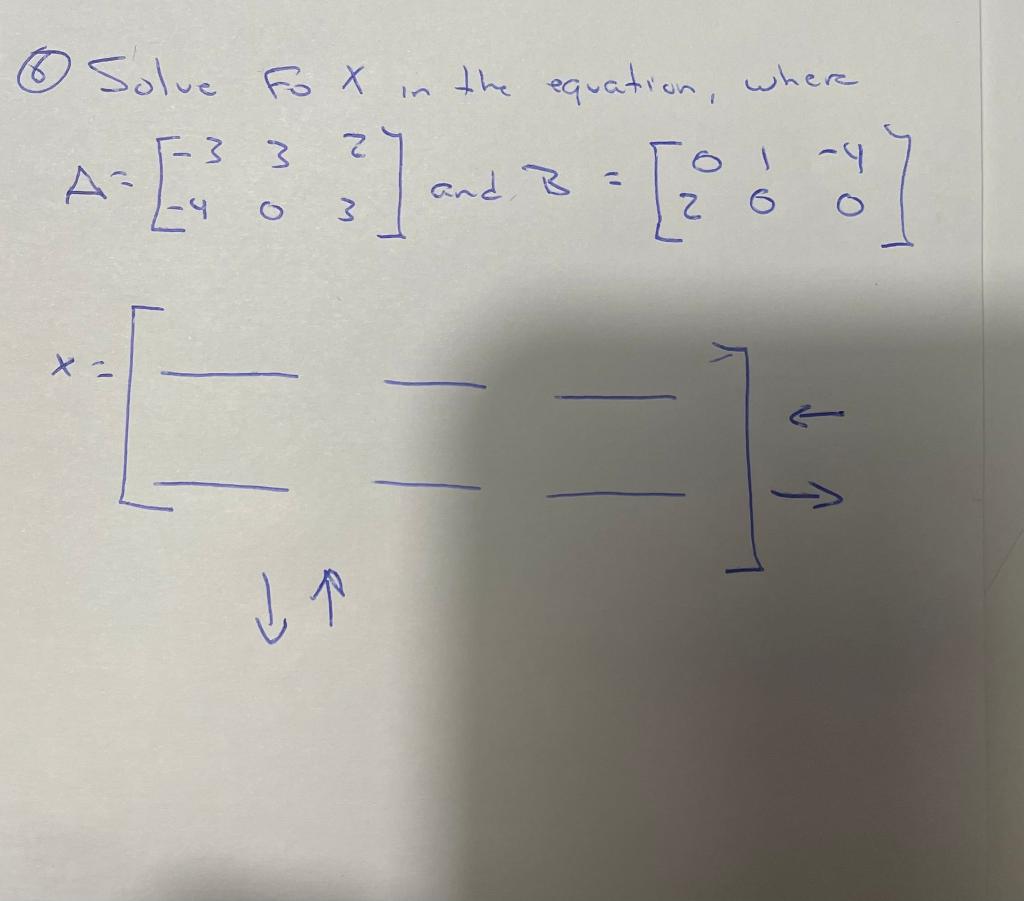 ⑥ Solve Fo X in the equation, where
A = [-3 3 2
-4 0 3] and B = [0 1 -4
2 0 0]
x = [___ ___ ___ ←
___ ___ ___] →
↓ ↑